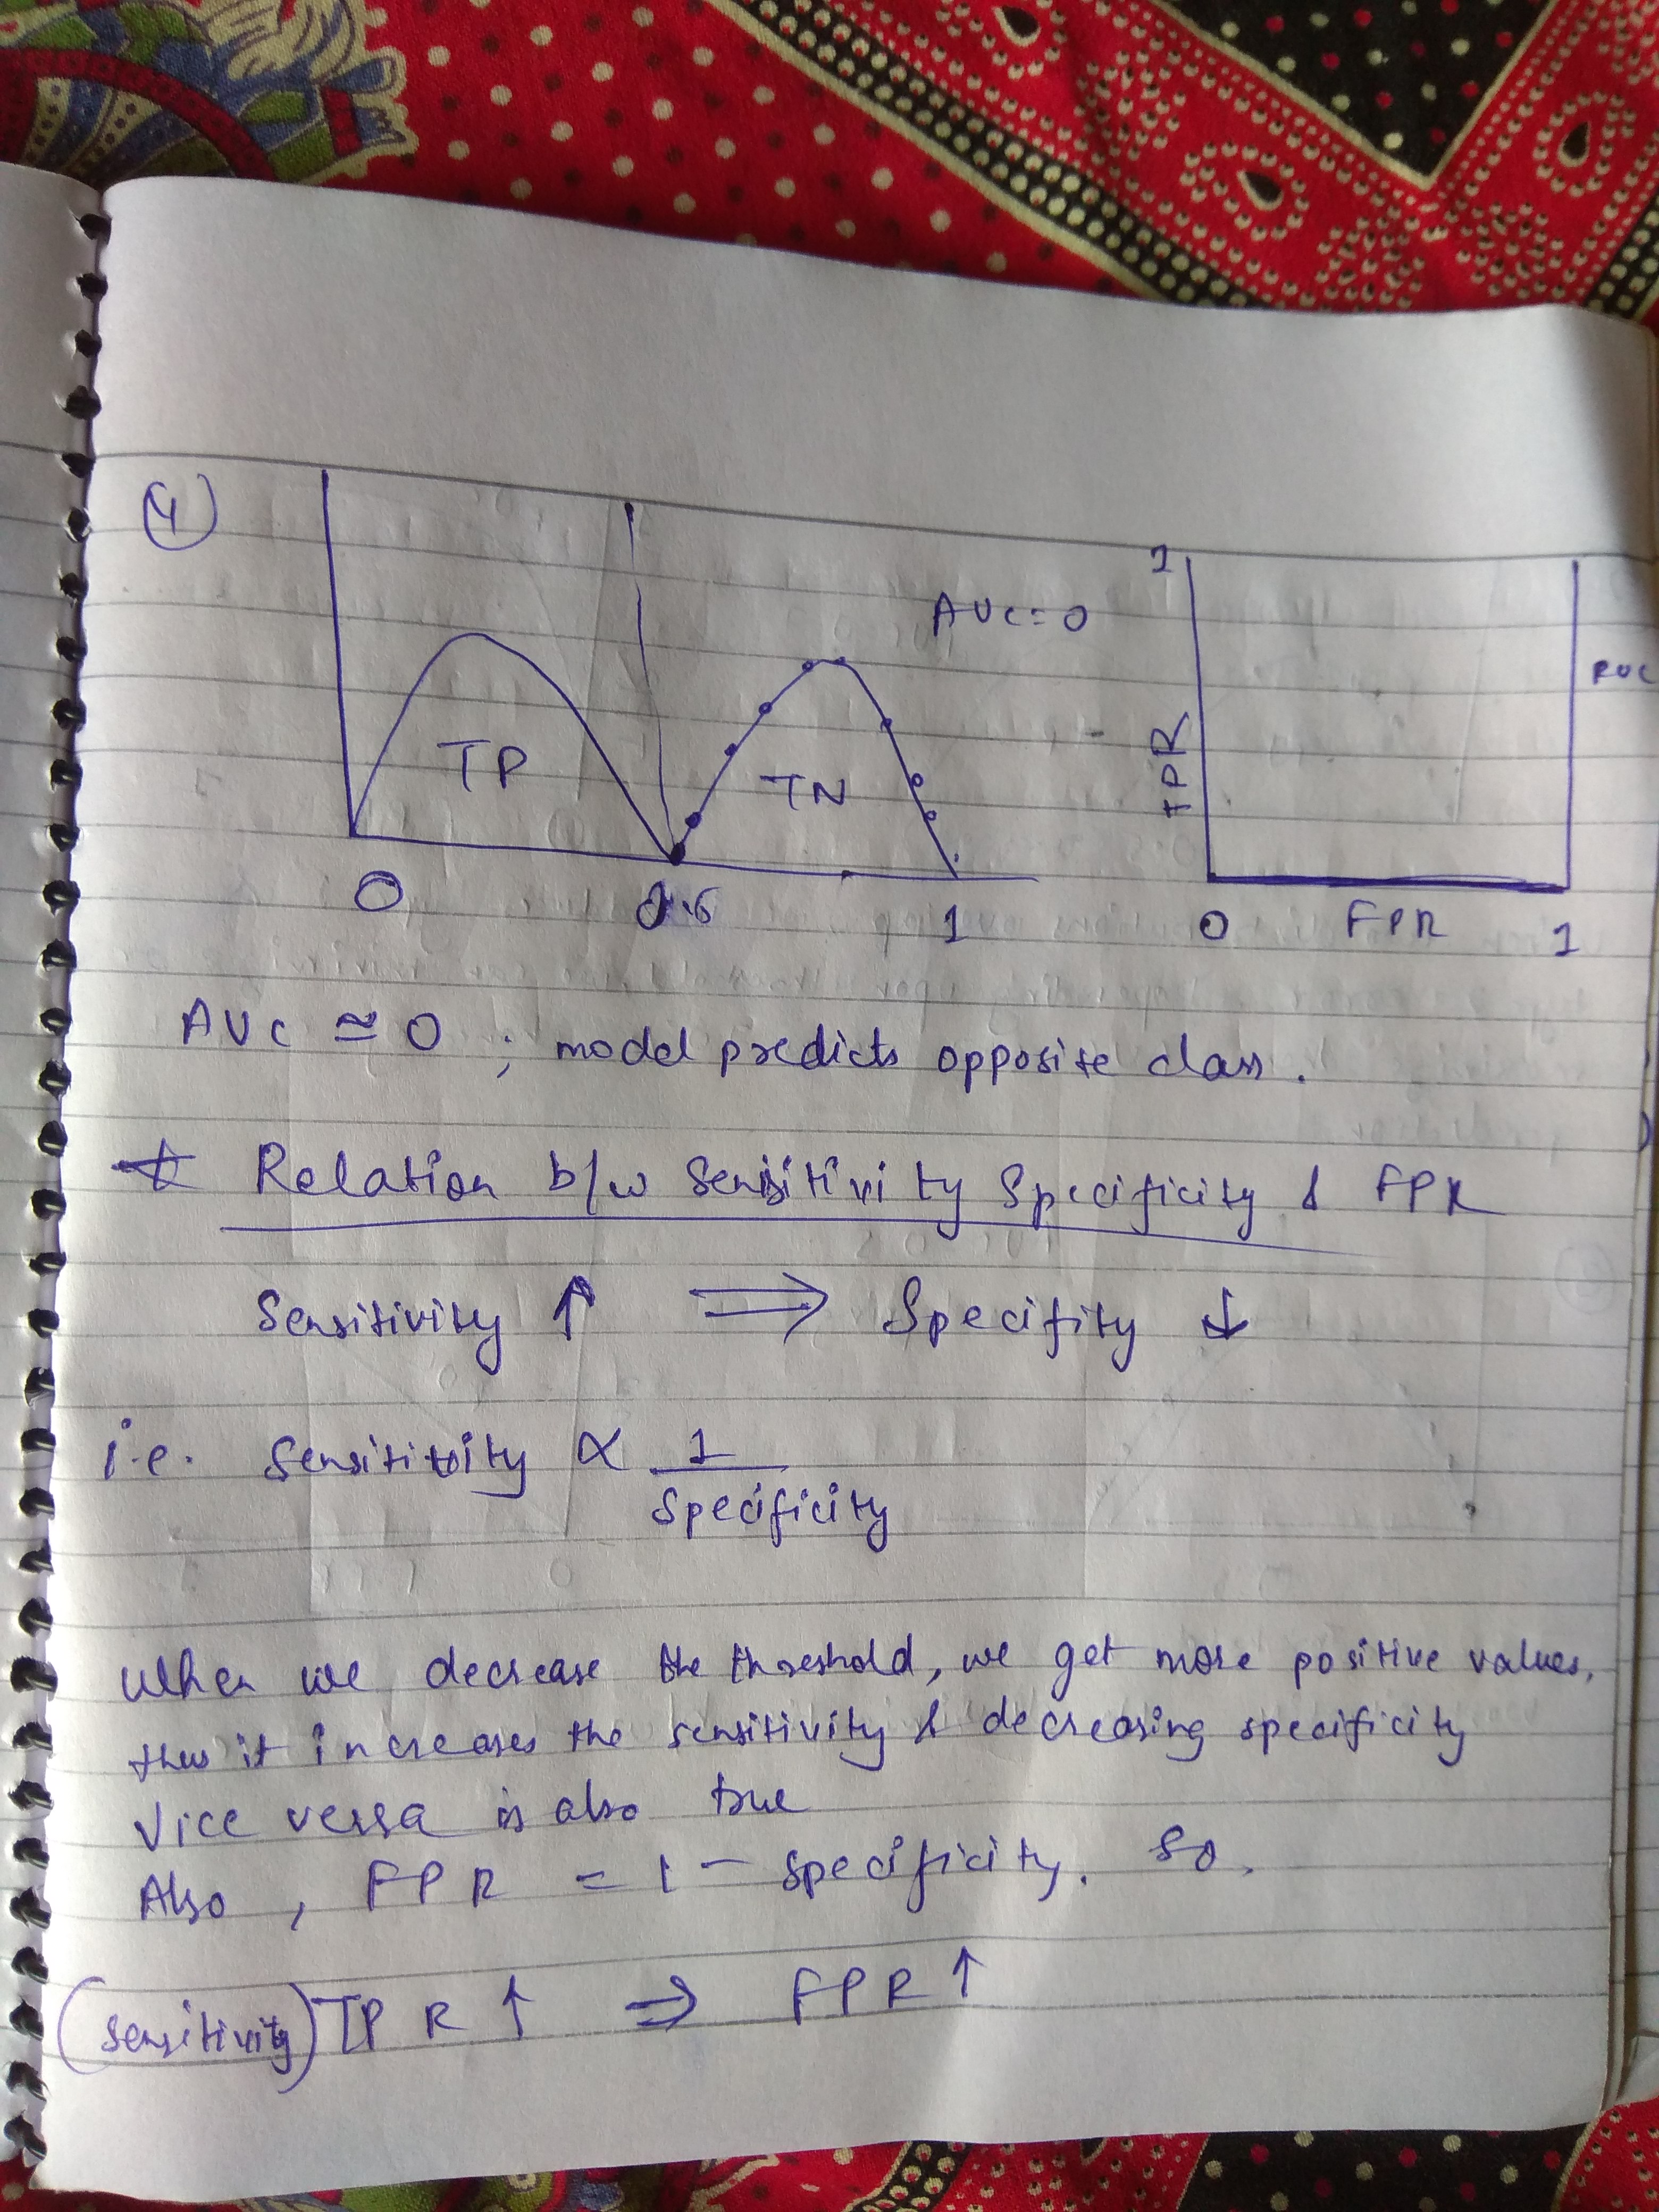 4
AUC = 0
1
ROC
TPR
TP
TN
0
0.5
1
0
FPR
1
AUC ≅ 0 ; model predicts opposite class.
☆ Relation b/w Sensitivity Specificity & FPR
Sensitivity ↑ ⟹ Specifity ↓
i.e. Sensitivity ∝ 1
Specificity
When we decrease the threshold, we get more positive values,
thus it increases the sensitivity & decreasing specificity
Vice versa is also true
Also, FPR = 1 − specificity. So,
(sensitivity) TPR ↑ ⇒ FPR ↑